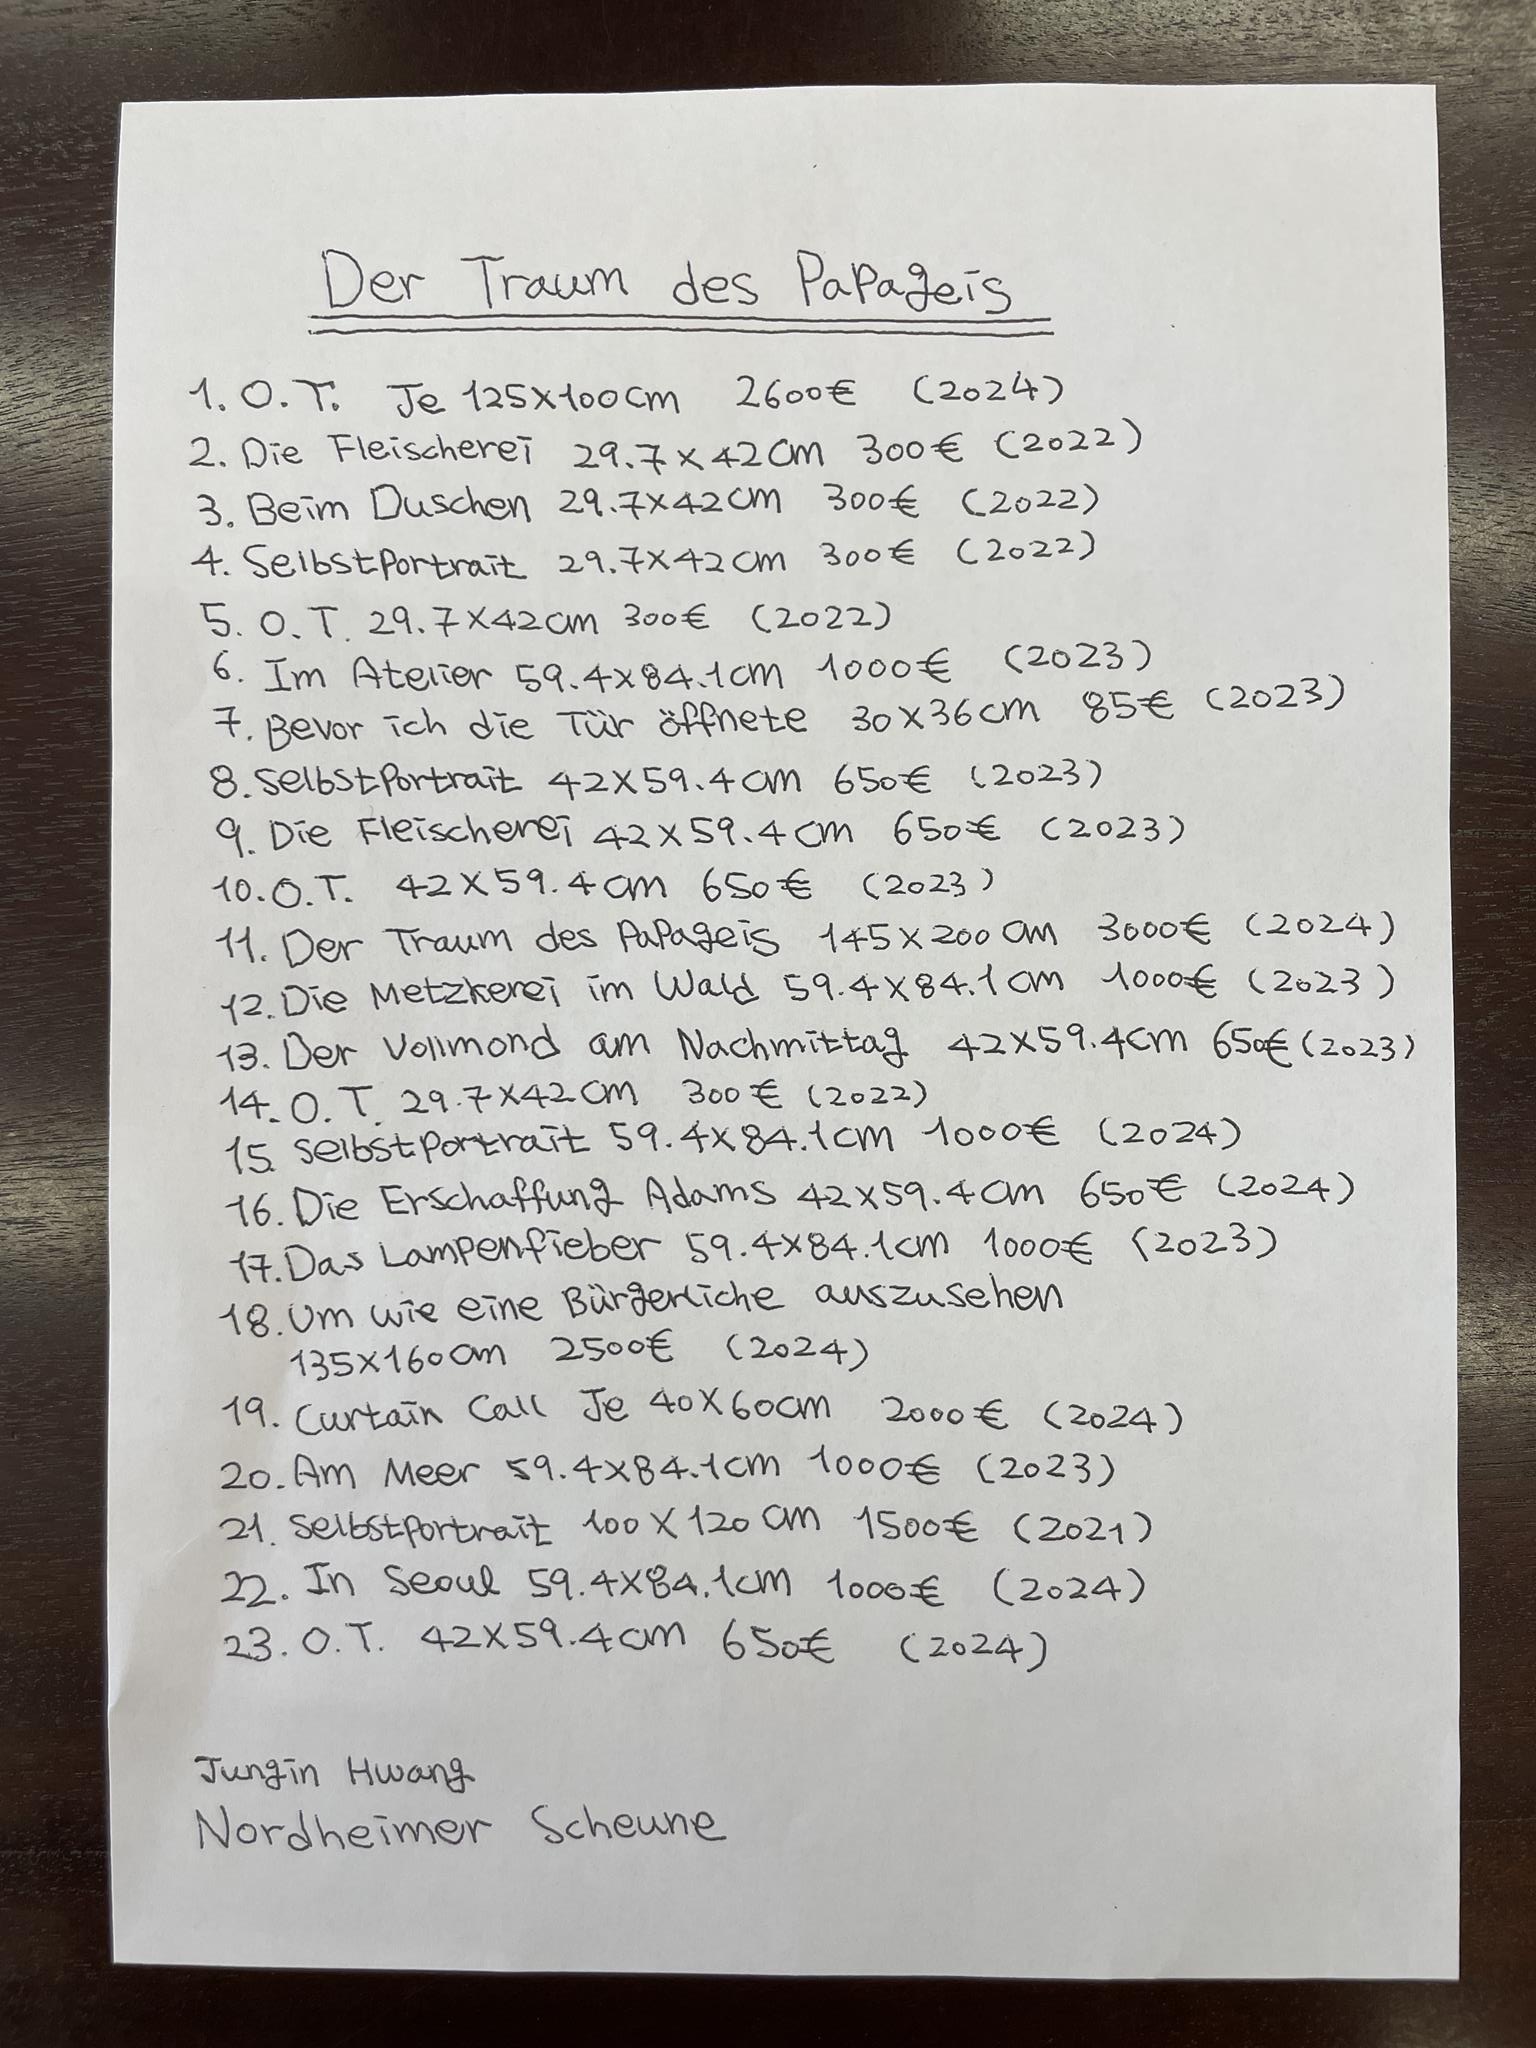 Der Traum des Papageis
1. O.T. Je 125x100cm 2600€ (2024)
2. Die Fleischerei 29.7x42cm 300€ (2022)
3. Beim Duschen 29.7x42cm 300€ (2022)
4. Selbstportrait 29.7x42cm 300€ (2022)
5. O.T. 29.7x42cm 300€ (2022)
6. Im Atelier 59.4x84.1cm 1000€ (2023)
7. Bevor ich die Tür öffnete 30x36cm 85€ (2023)
8. Selbstportrait 42x59.4cm 650€ (2023)
9. Die Fleischerei 42x59.4cm 650€ (2023)
10. O.T. 42x59.4cm 650€ (2023)
11. Der Traum des Papageis 145x200cm 3000€ (2024)
12. Die Metzkerei im Wald 59.4x84.1cm 1000€ (2023)
13. Der Vollmond am Nachmittag 42x59.4cm 650€ (2023)
14. O.T. 29.7x42cm 300€ (2022)
15. Selbstportrait 59.4x84.1cm 1000€ (2024)
16. Die Erschaffung Adams 42x59.4cm 650€ (2024)
17. Das Lampenfieber 59.4x84.1cm 1000€ (2023)
18. Um wie eine Bürgerliche auszusehen
135x160cm 2500€ (2024)
19. Curtain Call Je 40x60cm 2000€ (2024)
20. Am Meer 59.4x84.1cm 1000€ (2023)
21. Selbstportrait 100x120cm 1500€ (2021)
22. In Seoul 59.4x84.1cm 1000€ (2024)
23. O.T. 42x59.4cm 650€ (2024)
Jungin Hwang
Nordheimer Scheune